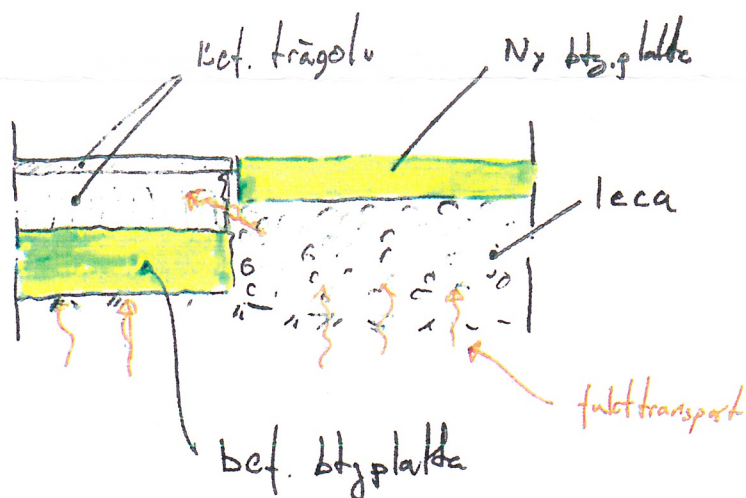 Bef. trägolv
Ny btg.platta
leca
fukttransport
bef. btgplatta